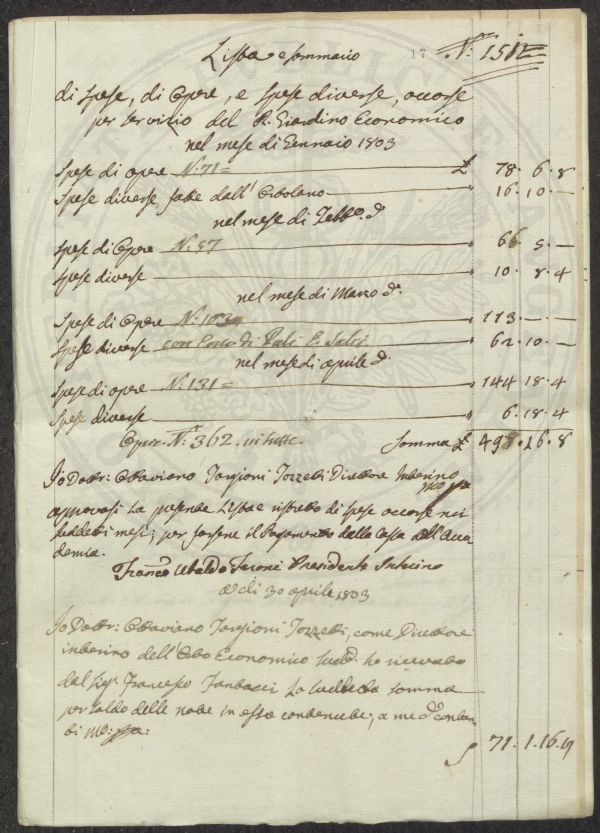 Lista e sommario 17 N. 1512
di Spese, di Opere, e Spese diverse, occorse
per servizio del R. Giardino Economico
nel mese di Gennaio 1803
Spese di opere N. 71 = £ 78 . 6 . 8
Spese diverse fatte dall' Ortolano " 16 . 10 . —
nel mese di Febb.o d.o
Spese di Opere N. 57 " 66 . 5 . —
Spese diverse " 10 . 8 . 4
nel mese di Marzo d.o
Spese di Opere N. 103 = " 113 . — . —
Spese diverse con costo di Pali e Salci " 62 . 10 . —
nel mese di aprile d.o
Spese di opere N. 131 = " 144 . 18 . 4
Spese diverse " 6 . 18 . 4
Opere N.o 362 . in tutte Somma £ 498 . 16 . 8
Io Dottr: Ottaviano Targioni Tozzetti Direttore Interino
approvasi la presente Lista e ristretto di spese occorse nei
suddetti mesi, per farsene il Pagamento dalla Cassa dell'Acca
demia.
Franc.o Ubaldo Feroni Presidente Interino
A dì 30 aprile 1803
Io Dottr: Ottaviano Targioni Tozzetti, come Direttore
interino dell'Orto Economico sud.o ho ricevuto
dal Sig.r Francesco Tantacci la suddetta somma
per saldo delle note in essa contenute, a me d.o contan
ti M:
71 . 1 . 16 . 4